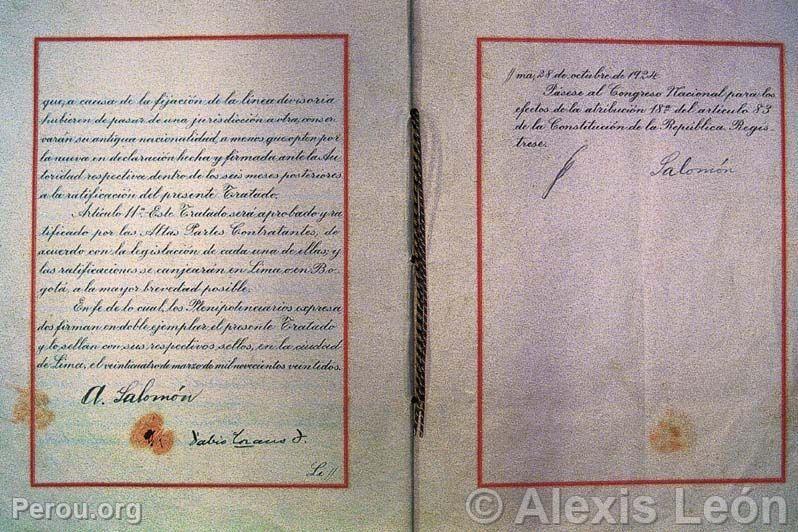 que, a causa de la fijación de la línea divisoria
hubieren de pasar de una jurisdicción a otra, conser
varán su antigua nacionalidad, a menos que opten por
la nueva en declaración hecha y firmada ante la Au
toridad respectiva, dentro de los seis meses posteriores
a la ratificación del presente Tratado.
Artículo 11º- Este Tratado será aprobado y ra
tificado por las Altas Partes Contratantes, de
acuerdo con la legislación de cada una de ellas; y
las ratificaciones se canjearán en Lima o en Bo-
gotá, a la mayor brevedad posible.
En fe de lo cual, los Plenipotenciarios expresa
dos firman en doble ejemplar el presente Tratado
y lo sellan con sus respectivos sellos, en la ciudad
de Lima, el veinticuatro de marzo de mil novecientos veintidos.
A. Salomón
Fabio Lozano T.
Li
ma, 28 de octubre de 1924
Pásese al Congreso Nacional para los
efectos de la atribución 18ª del artículo 83
de la Constitución de la República. Regís-
trese.
Salomón
Perou.org
© Alexis León